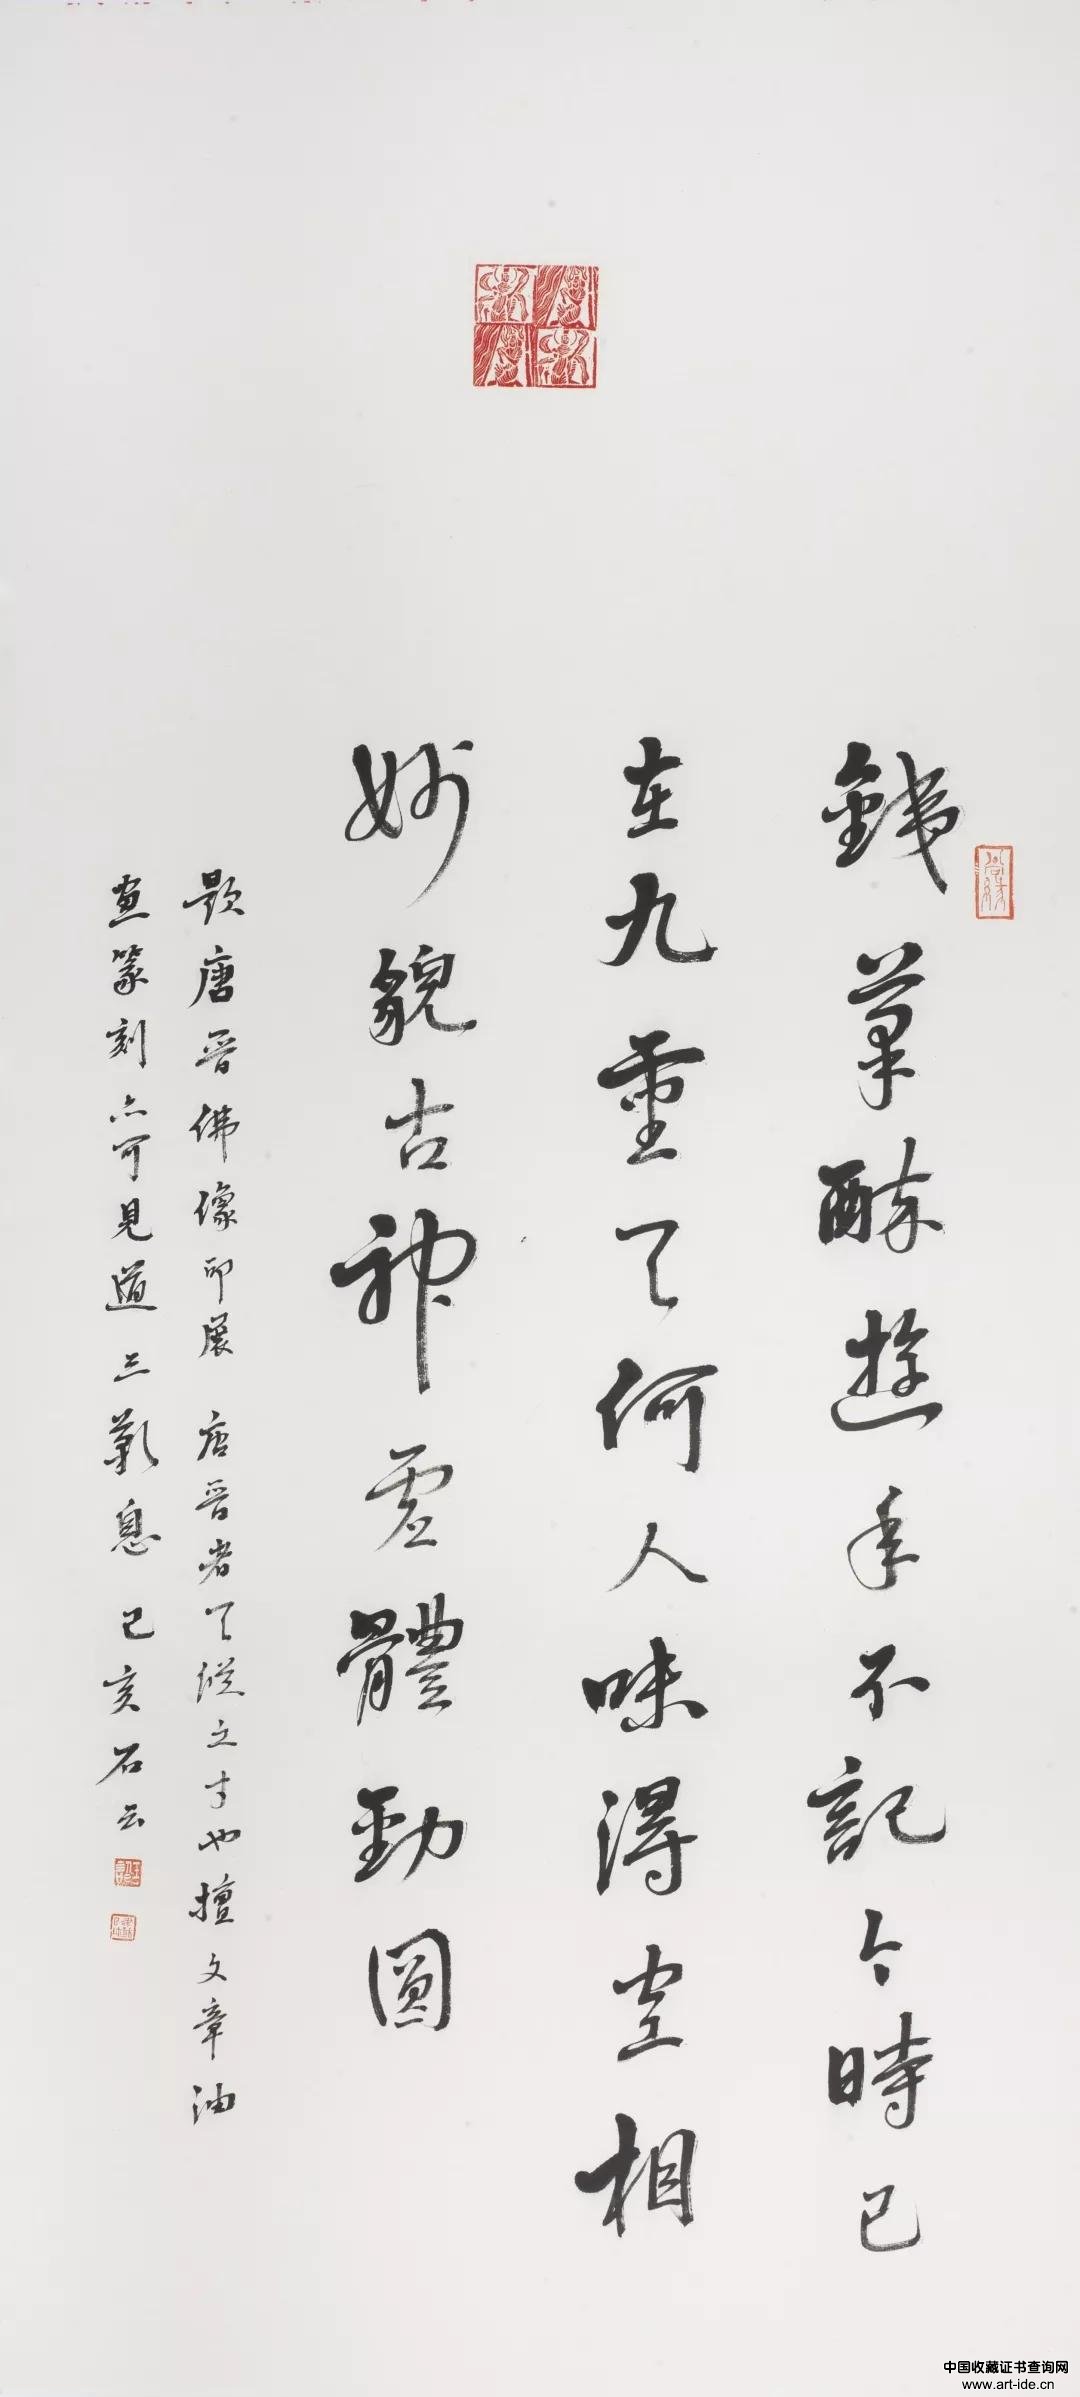 鐵筆酣遊手不記今時已
在九重天何人味得空相
妙貌古神虛體勁圓
題唐晉佛像印展 唐晉者天縱之才也擅文章油
畫篆刻亦可見道之氣息 己亥石雲
中国收藏证书查询网
www.art-ide.cn